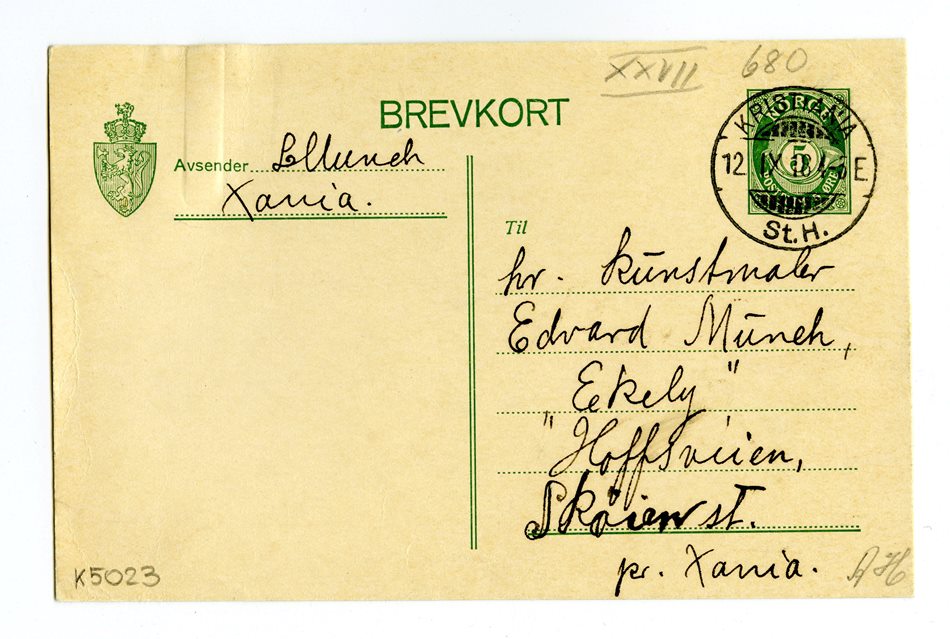 XXVII 680
BREVKORT
Avsender LMunch
Xania.
NORGE
5
POSTFRIM ØRE
KRISTIANIA
12 IX 18 4-5 E
St.H.
Til
hr. Kunstmaler
Edvard Munch,
"Ekely"
Hoffsveien,
Skøien st.
pr. Xania.
K5023